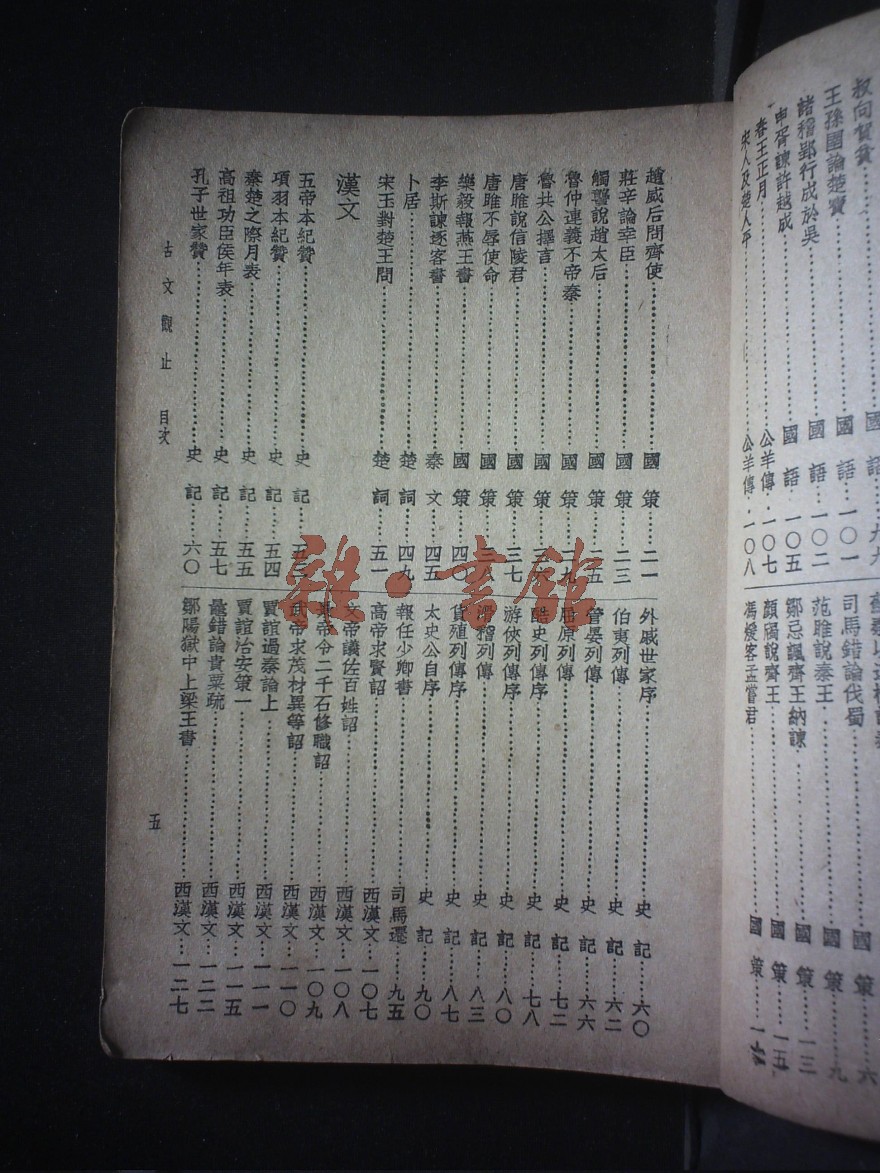 叔向賀貧……國語…九九
王孫圉論楚寶……國語…一〇一
諸稽郢行成於吳……國語…一〇二
申胥諫許越成……國語…一〇五
春王正月……公羊傳·一〇七
宋人及楚人平……公羊傳·一〇八
司馬錯論伐蜀……國策……九
范雎說秦王……國策……
鄒忌諷齊王納諫……國策……一三
顏斶說齊王……國策……一五
馮煖客孟嘗君……國策……
趙威后問齊使……國策……二一
莊辛論幸臣……國策……二三
觸讋說趙太后……國策……二五
魯仲連義不帝秦……國策……二九
魯共公擇言……國策……
唐雎說信陵君……國策……三七
唐雎不辱使命……國策……三八
樂毅報燕王書……國策……四〇
李斯諫逐客書……秦文……四五
卜居……楚詞……四九
宋玉對楚王問……楚詞……五一
漢文
五帝本紀贊……史記……五三
項羽本紀贊……史記……五四
秦楚之際月表……史記……五五
高祖功臣侯年表……史記……五七
孔子世家贊……史記……六〇
外戚世家序……史記……六〇
伯夷列傳……史記……六二
管晏列傳……史記……六六
屈原列傳……史記……七二
酷吏列傳序……史記……七八
游俠列傳序……史記……八〇
滑稽列傳……史記……八三
貨殖列傳序……史記……八七
太史公自序……史記……九〇
報任少卿書……司馬遷……九五
高帝求賢詔……西漢文…一〇七
文帝議佐百姓詔……西漢文…一〇八
景帝令二千石修職詔……西漢文…一〇九
武帝求茂材異等詔……西漢文…一一〇
賈誼過秦論上……西漢文…一一一
賈誼治安策一……西漢文…一一五
鼂錯論貴粟疏……西漢文…一二二
鄒陽獄中上梁王書……西漢文…一二七
古文觀止 目次
五
雜·書館